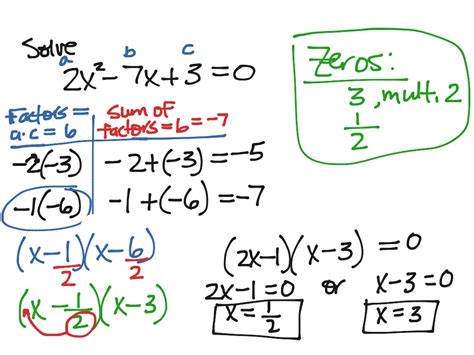 Solve
a b c
2x² - 7x + 3 = 0
Factors = a·c = 6
Sum of factors = b = -7
-2(-3) -2 + (-3) = -5
-1(-6) -1 + (-6) = -7
(x - 1/2)(x - 6/2)
(x - 1/2)(x - 3)
Zeros:
3, mult. 2
1/2
(2x - 1)(x - 3) = 0
2x - 1 = 0 or x - 3 = 0
x = 1/2 x = 3